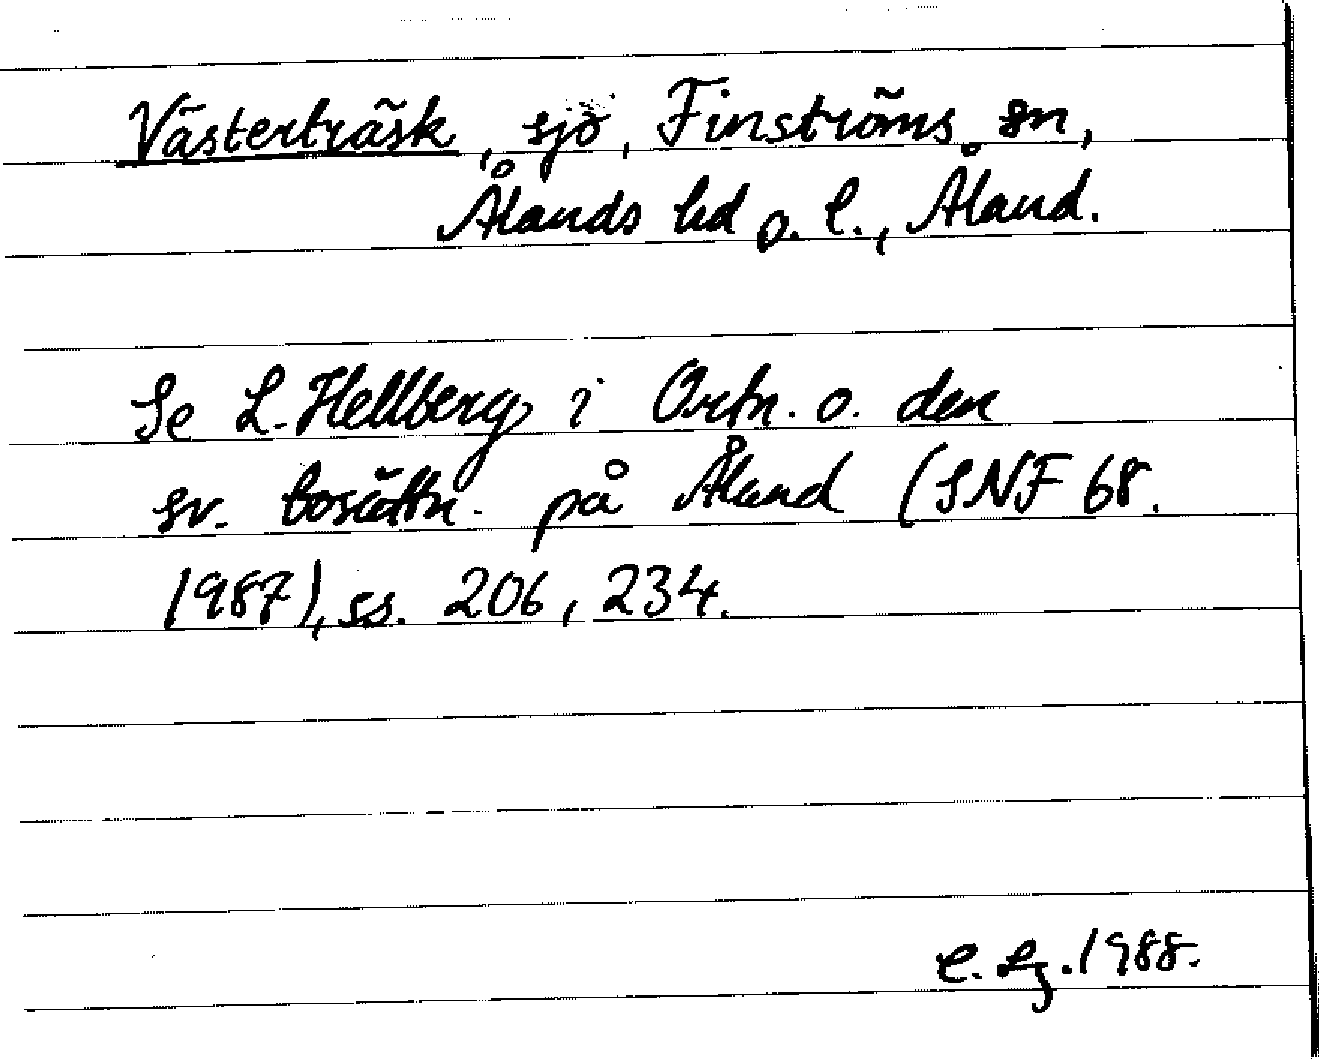 Västerträsk, sjö, Finströms sn,
Ålands hd o. l., Åland.
Se L. Hellberg i Ortn. o. den
sv. bosättn. på Åland (SNF 68.
1987), ss. 206, 234.
1988.